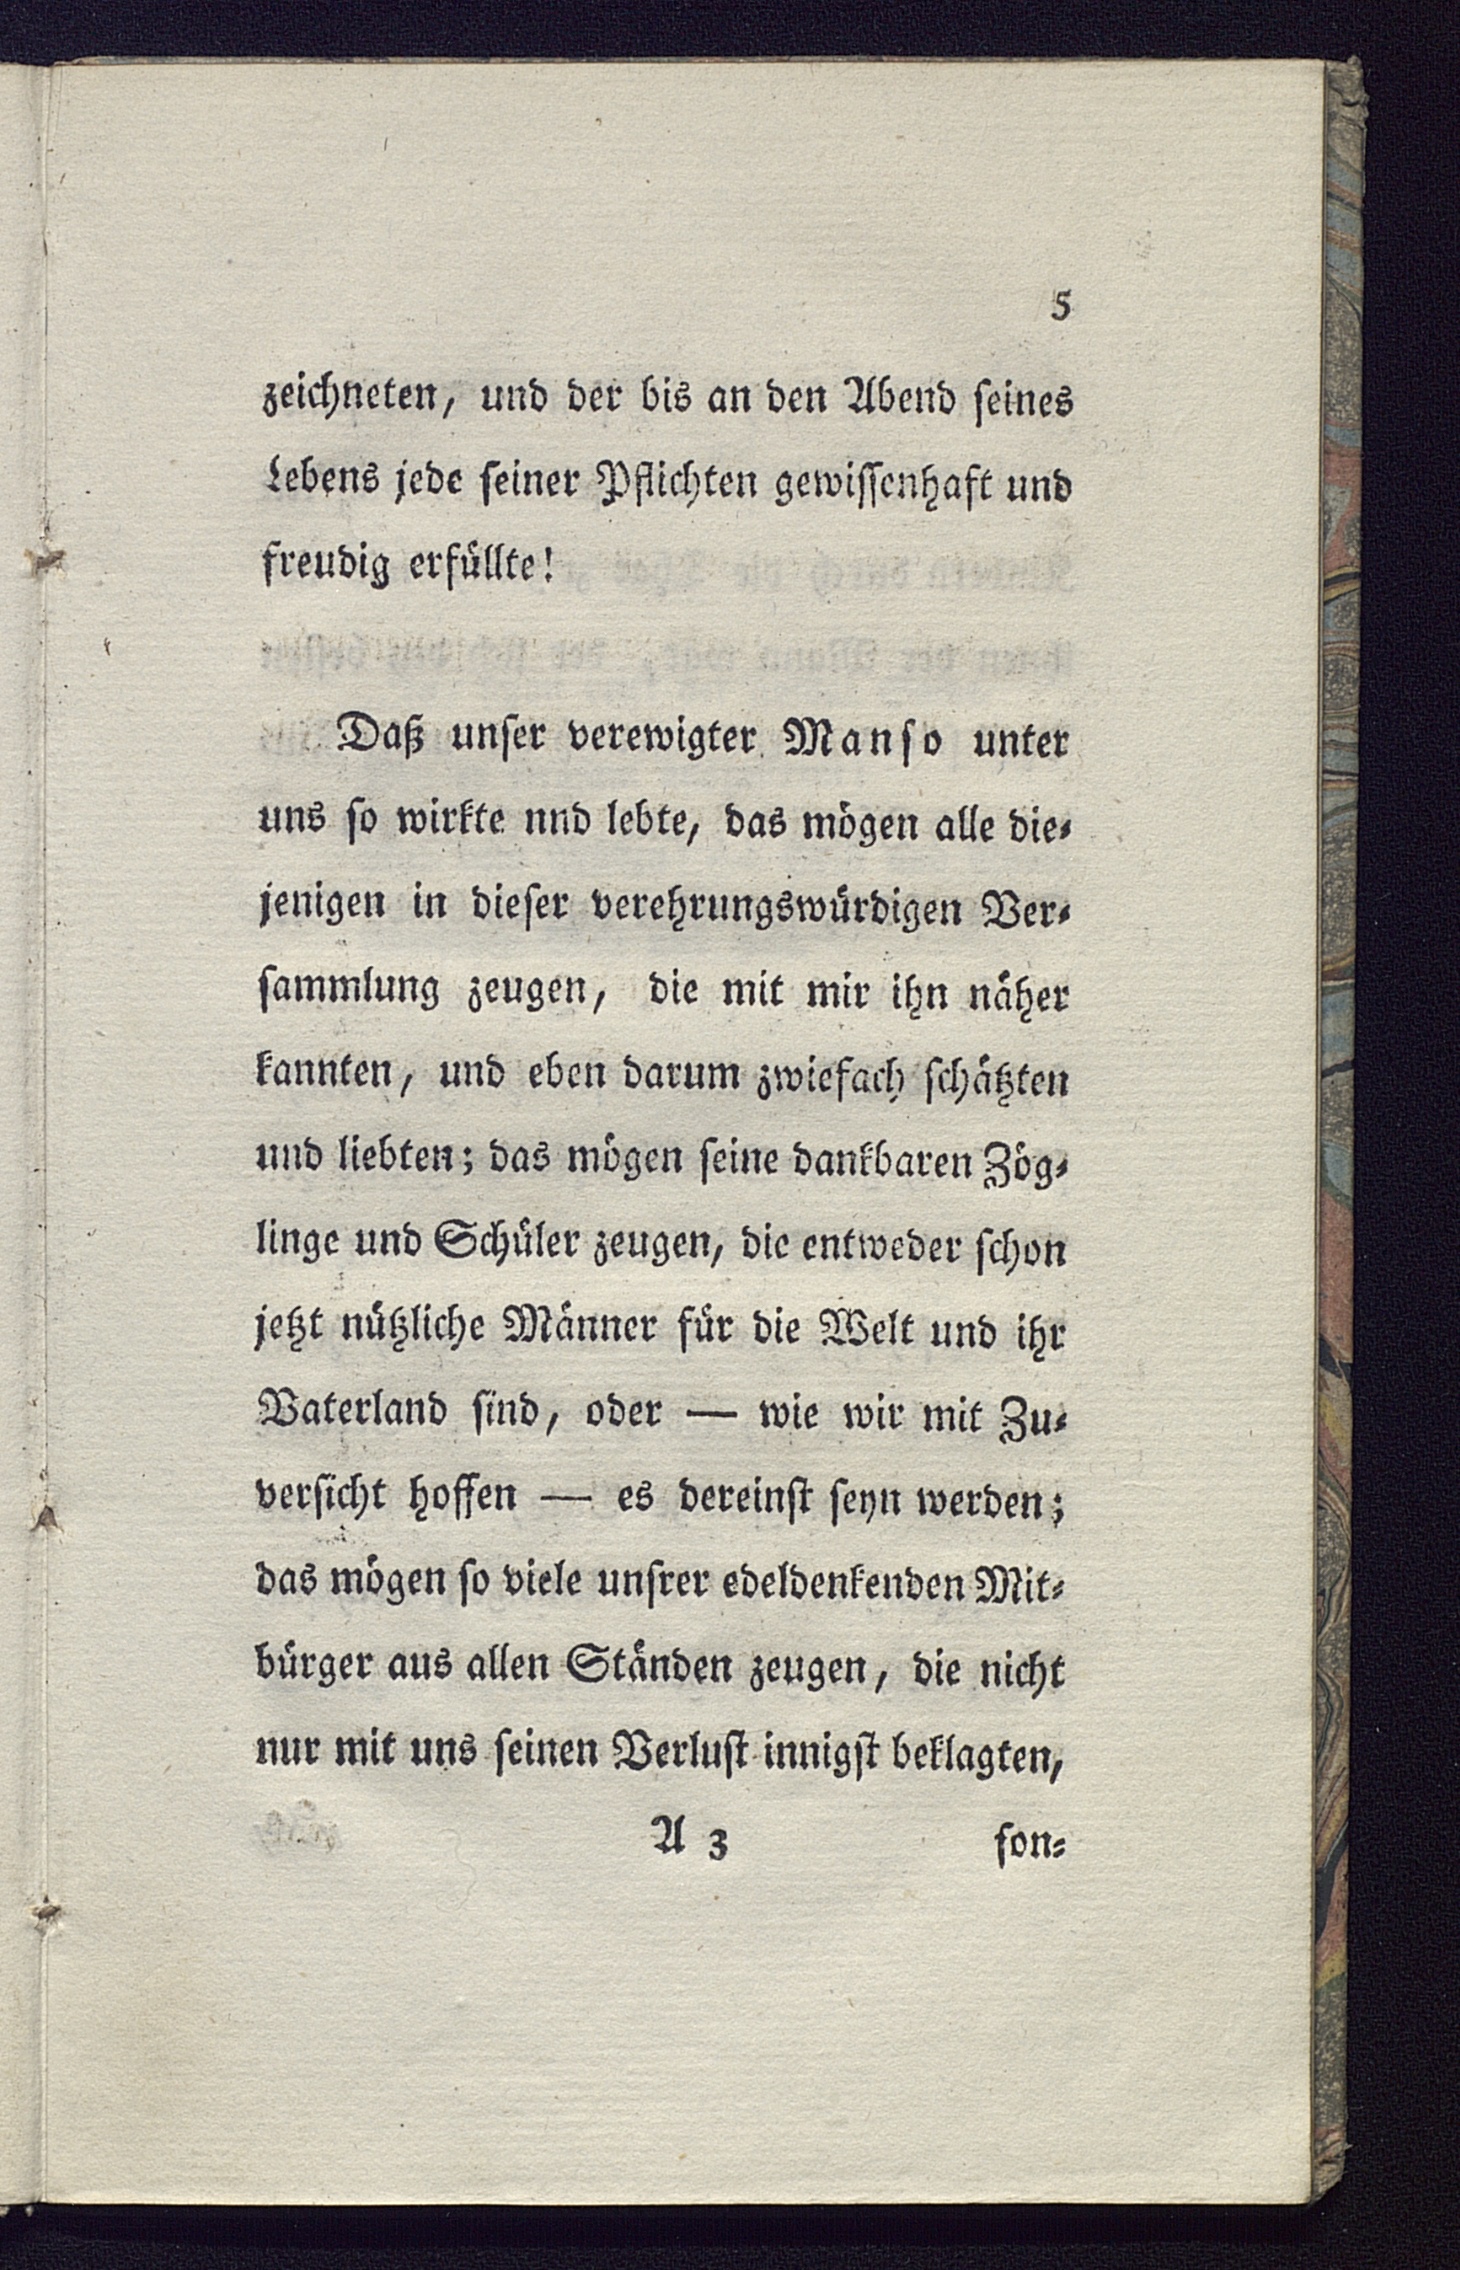 5
zeichneten, und der bis an den Abend ſeines
Lebens jede ſeiner Pflichten gewiſſenhaft und
freudig erfüllte!
Daß unſer verewigter Manſo unter
uns ſo wirkte nnd lebte, das mögen alle die⸗
jenigen in dieſer verehrungswürdigen Ver⸗
ſammlung zeugen, die mit mir ihn näher
kannten, und eben darum zwiefach ſchätzten
und liebten; das mögen ſeine dankbaren Zög⸗
linge und Schüler zeugen, die entweder ſchon
jetzt nützliche Männer für die Welt und ihr
Vaterland ſind, oder — wie wir mit Zu⸗
verſicht hoffen — es dereinſt ſeyn werden;
das mögen ſo viele unſrer edeldenkenden Mit⸗
bürger aus allen Ständen zeugen, die nicht
nur mit uns ſeinen Verluſt innigſt beklagten,
A 3 ſon⸗